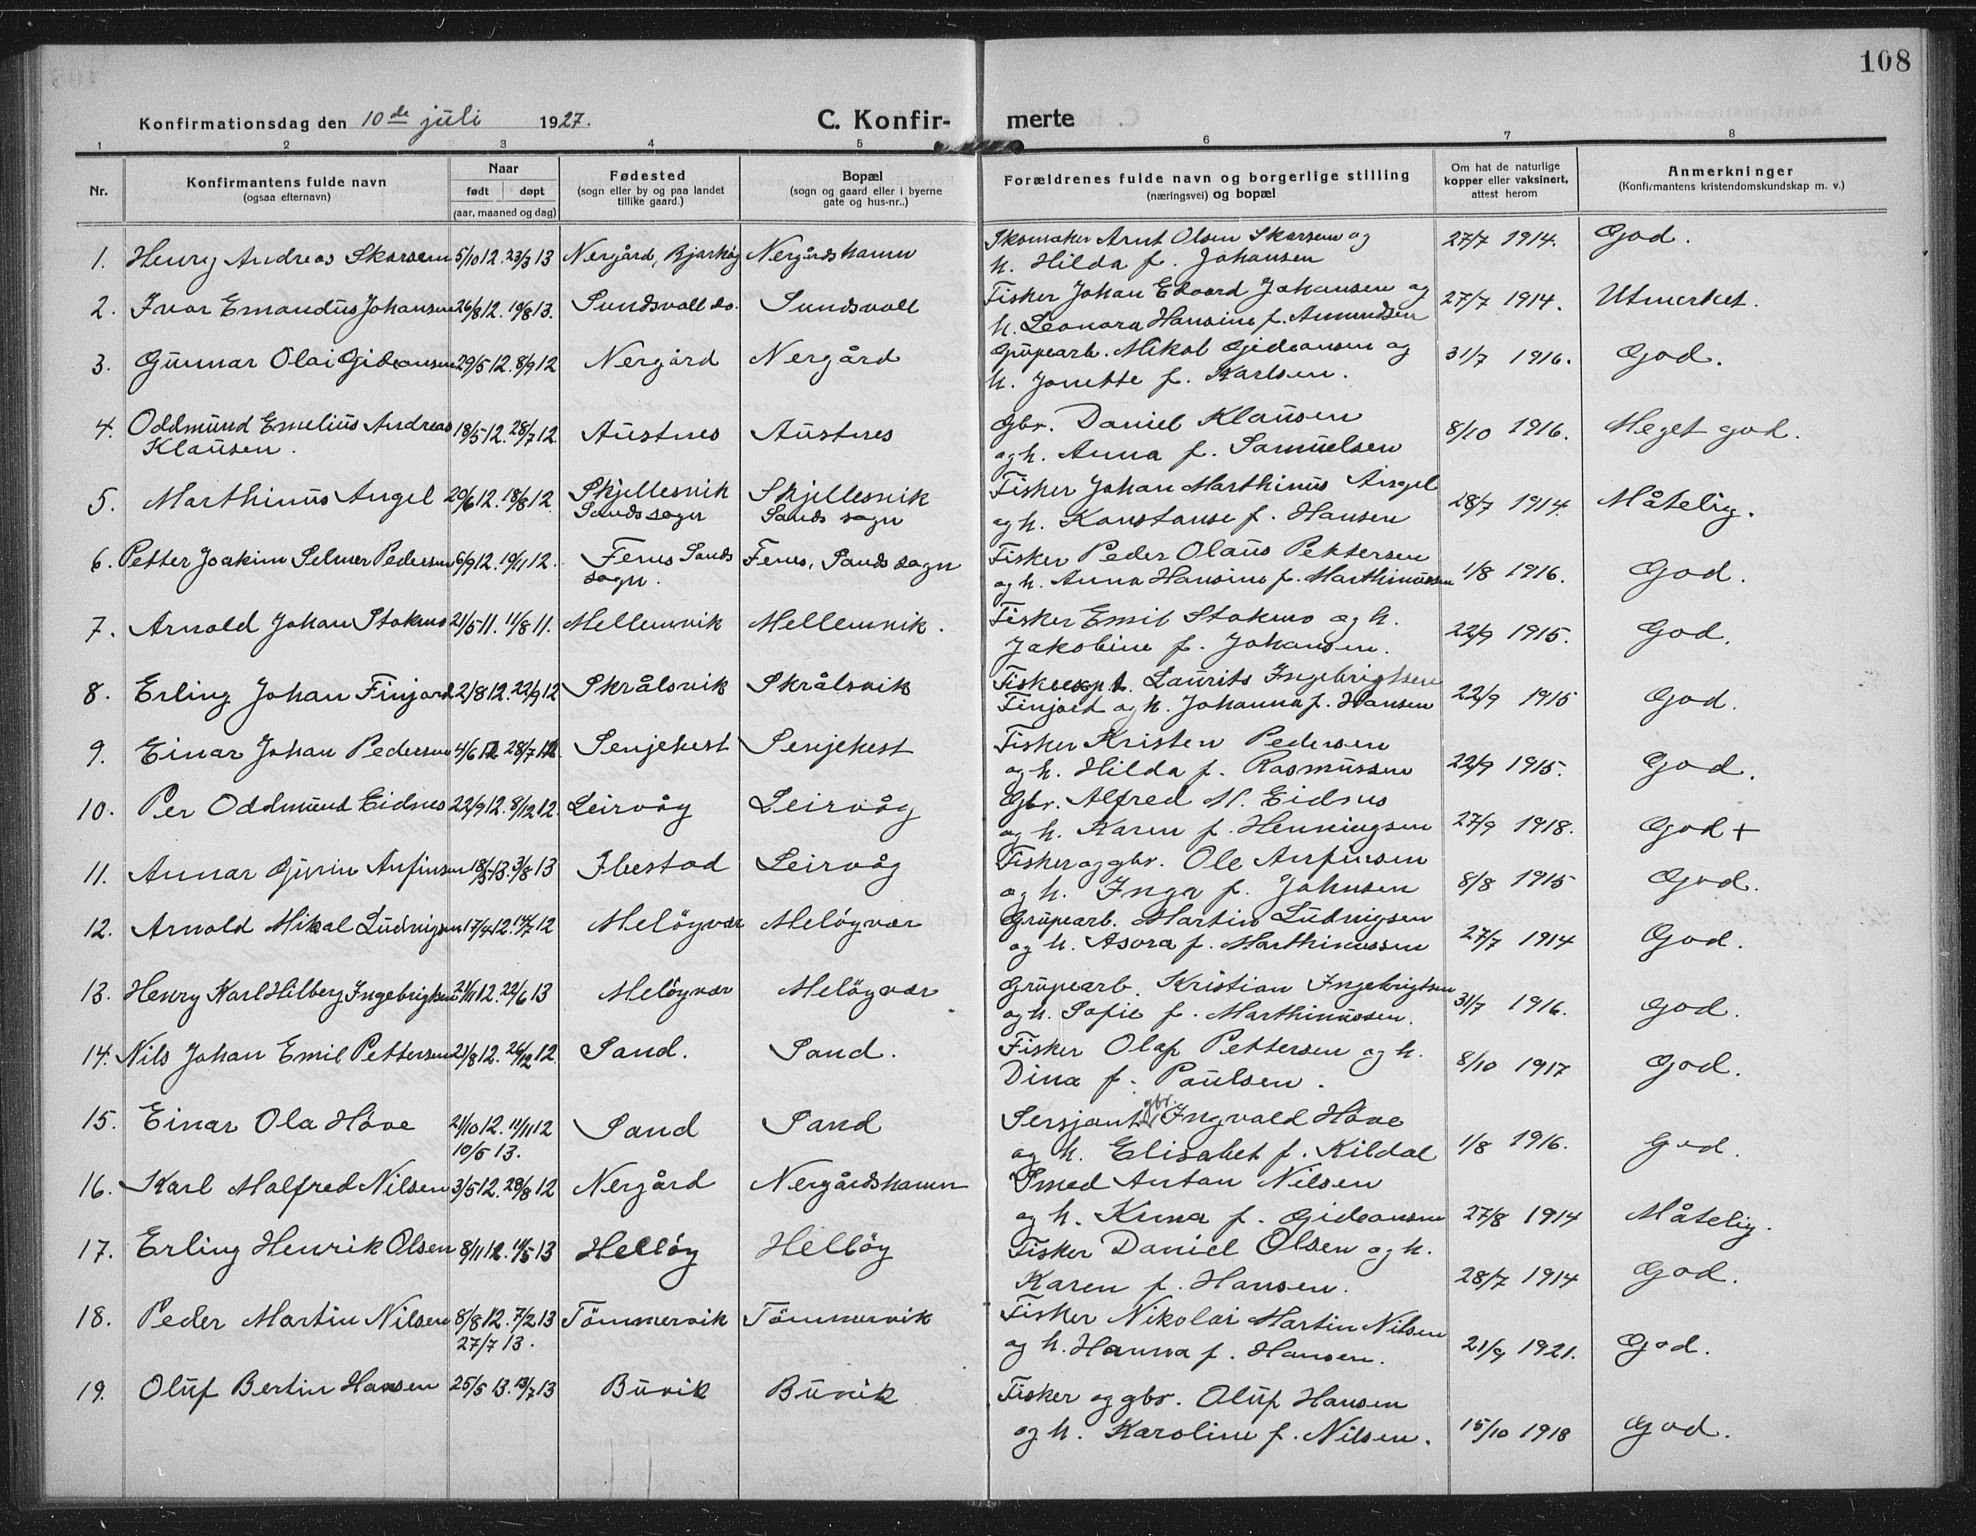 108
Konfirmationsdag den 10de juli 1927. C. Konfir- merte
1 2 3 4 5 6 7 8
Nr. Konfirmantens fulde navn (ogsaa efternavn) Naar født døpt (aar, maaned og dag) Fødested (sogn eller by og paa landet tillike gaard.) Bopæl (sogn og gaard eller i byerne gate og hus-nr..) Forældrenes fulde navn og borgerlige stilling (næringsvei) og bopæl Om hat de naturlige kopper eller vaksinert, attest herom Anmerkninger (Konfirmantens kristendomskundskap m. v.)
1. Henry Andreas Skarsem 5/10 12. 23/3 13 Nergård, Bjarkøy Nergårdshamn Skomaker Arnt Olsen Skarsem og 27/7 1914. God.
h. Hilda f. Johansen
2. Ivar Emandus Johansen 26/8 12. 10/8 13. Sundsvoll do. Sundsvoll Fisker Johan Edvard Johansen og 27/7 1914. Utmerket.
h. Leonora Hansine f. Amundsen
3. Gunnar Olai Gideonsen 29/5 12. 8/9 12 Nergård Nergård Grupearb. Mikal Gideonsen og 31/7 1916. God.
h. Jonette f. Karlsen.
4. Oddmund Emelius Andreas 18/5 12. 28/7 12 Austnes Austnes Gbr. Daniel Klausen 8/10 1916. Meget god.
Klausen. og h. Anna f. Samuelsen
5. Marthinus Angel 20/6 12. 18/8 12. Skjellesvik Skjellesvik Fisker Johan Marthinus Angel 28/7 1914. Måtelig.
Sands sogn Sands sogn og h. Konstanse f. Hansen
6. Petter Joakim Selmer Pedersen 6/9 12. 10/11 12. Fenes Sands Fenes, Sands sogn Fisker Peder Olaus Pettersen 1/8 1916. God.
sogn. og h. Anna Hansine f. Marthinussen
7. Arnold Johan Stokmo 21/5 11. 11/8 11. Mellemvik Mellemvik. Fisker Emil Stokmo og h. 22/9 1915. God.
Jakobine f. Johansen.
8. Erling Johan Finjord 21/8 12. 22/9 12 Skrålsvik Skrålsvik Fiskeexpt. Laurits Ingebrigtsen 22/9 1915 God.
Finjord og h. Johanna f. Hansen
9. Einar Johan Pedersen 4/6 12 28/7 12. Senjehest Senjehest Fisker Kristen Pedersen 22/9 1915. God.
og h. Hilda f. Rasmussen
10. Per Oddmund Eidnes 22/9 12. 8/12 12. Leirvåg Leirvåg Gbr. Alfred M. Eidnes 27/9 1918. God +
og h. Karen f. Henningsen
11. Annar Gurin Anfinsen 18/5 13. 3/8 13 Ibestad Leirvåg Fisker og gbr. Ole Anfinsen 8/8 1915 God.
og h. Inga f. Johnsen
12. Arnold Mikal Ludvigsen 17/4 12. 14/7 12 Meløyvær Meløyvær Grupearb. Martin Ludvigsen 27/7 1914 God.
og h. Asora f. Marthinussen
13. Henry Karl Hilberg Ingebrigtsen 21/11 12. 22/6 13 Meløyvær Meløyvær Grupearb. Kristian Ingebrigtsen 31/7 1916. God.
og h. Sofie f. Marthinussen.
14. Nils Johan Emil Pettersen 21/8 12. 26/12 12. Sand. Sand. Fisker Olaf Pettersen og h. 8/10 1917 God.
Dina f. Paulsen.
15. Einar Ola Høve 21/10 12. 11/11 12 Sand Sand Sersjant gbr. Ingvald Høve 1/8 1916. God.
10/5 13. og h. Elisabet f. Kildal
16. Karl Malfred Nilsen 3/5 12. 28/8 12 Nergård Nergårdshamn Smed Anton Nilsen 27/8 1914 Måtelig.
og h. Kuna f. Gideonsen
17. Erling Henrik Olsen 8/11 12. 11/5 13 Helløy Helløy Fisker Daniel Olsen og h. 28/7 1914 God.
Karen f. Hansen.
18. Peder Martin Nilsen 8/8 12. 7/2 13 Tömmervik Tömmervik Fisker Nikolai Martin Nilsen 21/9 1921. God.
27/7 13. og h. Hanna f. Hansen.
19. Oluf Bertin Hansen 25/5 13. 13/7 13 Buvik Buvik Fisker og gbr. Oluf Hansen 15/10 1918 God.
og h. Karoline f. Nilsen.